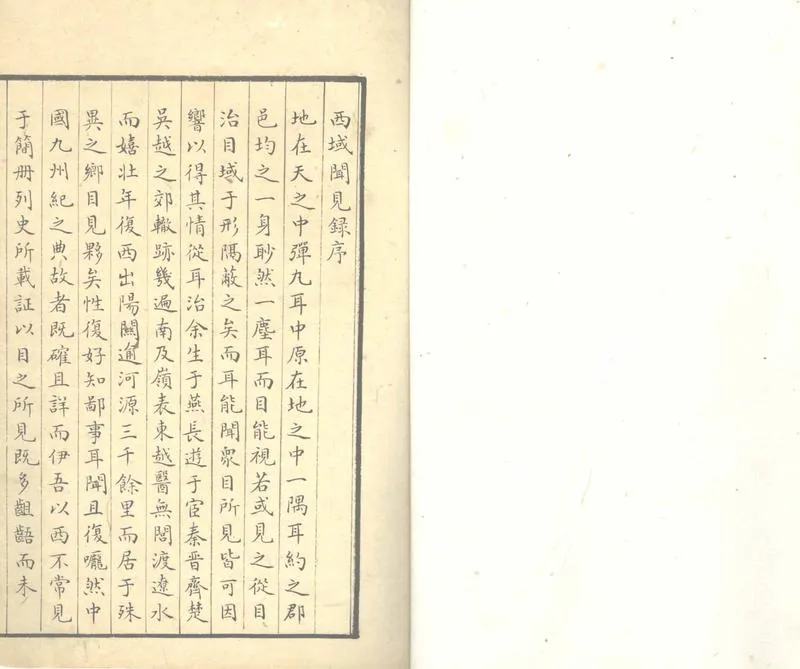 西域聞見録序
地在天之中彈九耳中原在地之中一隅耳約之郡
邑均之一身眇然一塵耳而目能視若或見之從目
治目域于形隔蔽之矣而耳能聞衆目所見皆可因
響以得其情從耳治余生于燕長遊于宦秦晉齊楚
吳越之郊轍跡幾遍南及嶺表東越醫無閭渡遼水
而嬉壯年復西出陽關逾河源三千餘里而居于殊
異之鄉目見夥矣性復好知鄙事耳聞且復嚨然中
國九州紀之典故者既確且詳而伊吾以西不常見
于簡冊列史所載証以目之所見既多齟齬而未